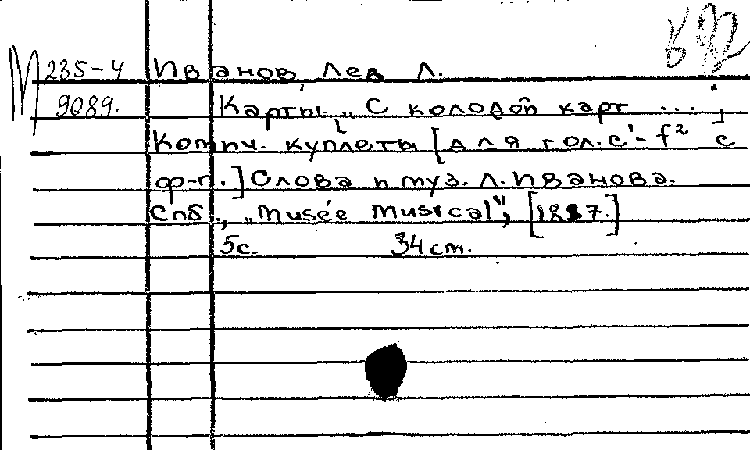 к92
М 235-4 Иванов, Лев Л.
9089. Карты. „С колодой карт ...";
Комич. куплеты [для гол. c¹-f² с
ф-п.] Слова и муз. Л. Иванова.
Спб., „Musée Musical", [1887.]
5с. 34 cm.